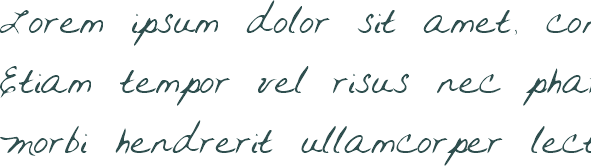 Lorem ipsum dolor sit amet, con
Etiam tempor vel risus nec phar
morbi hendrerit ullamcorper lect